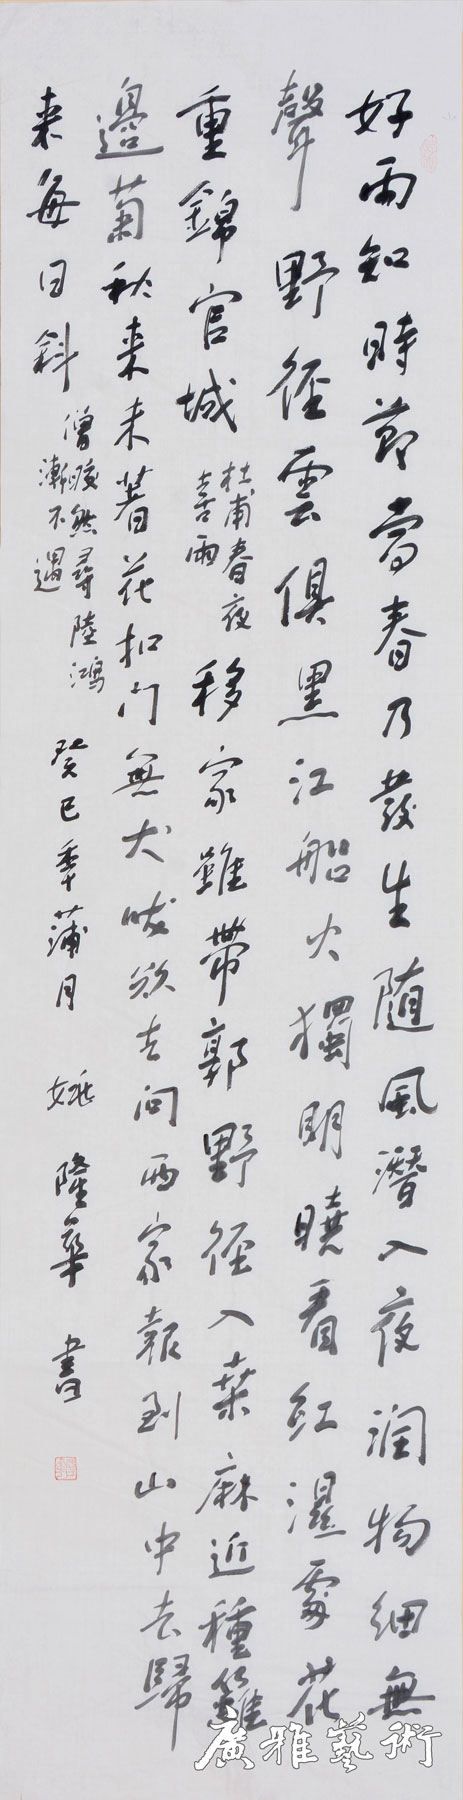 好雨知時節當春乃發生随風潛入夜润物细無
聲野徑雲俱黑江船火獨明曉看红濕處花
重錦官城杜甫春夜喜雨移家雖帶郭野徑入桑麻近種籬
邊菊秋来未著花扣门無犬吠欲去问西家報到山中去歸
来每日斜僧皎然尋陸鴻漸不遇癸巳年蒲月姚隆華書
廣雅藝術